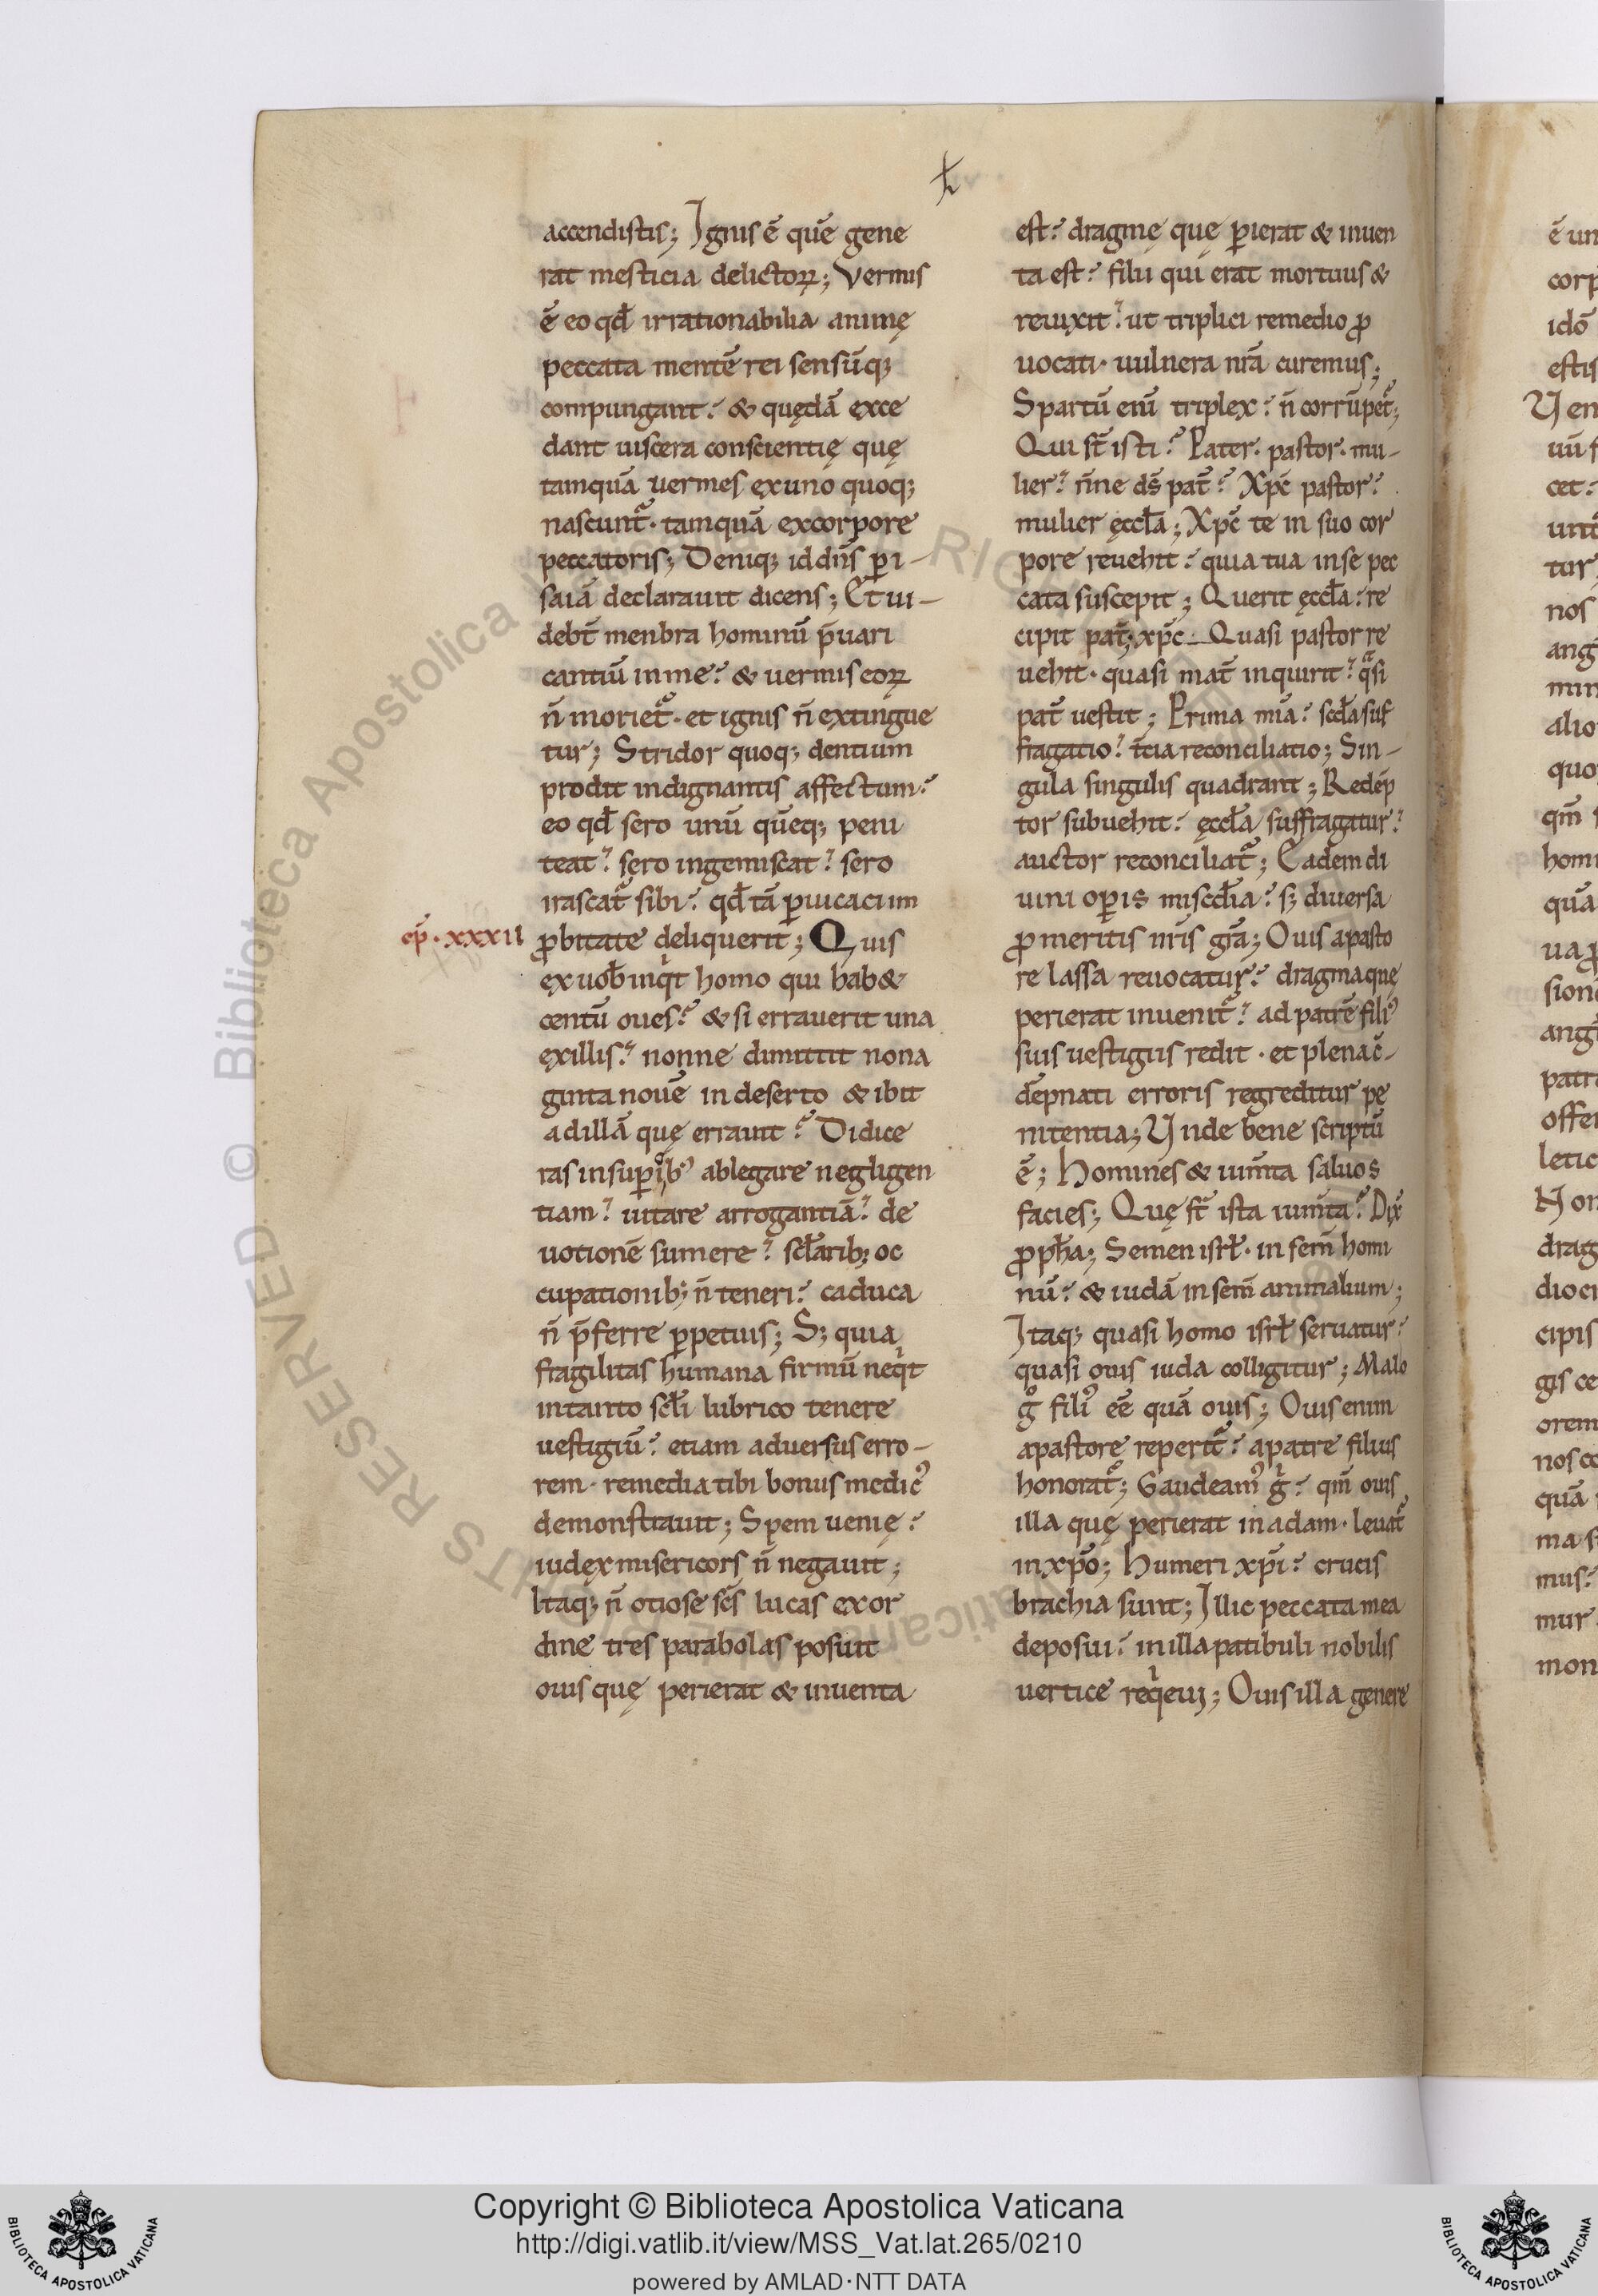 accendistis; Ignis ē quē gene
rat mesticia delictoꝝ; Vermis
ē eo qđ irrationabilia animę
peccata mentē rei sensūq;
compungant? & quędā exce
dant uiscera conscientię quę
tamquā uermes ex uno quoq;
nascunt᷑· tamquā ex corpore
peccatoris; Deniq; id dn̄s ꝑ i-
saiā declarauit dicens; Et ui-
debt̄ menbra hominū p̄uari
cantiū in me? & uermis eoꝝ
n̄ moriet᷑· et ignis n̄ extingue
tur; Stridor quoq; dentium
prodit indignantis affectum?
eo qđ sero unū quēq; peni
teat? sero ingemiscat? sero
irascat᷑ sibi? qđ tā ꝑuicaci im
ep̄· xxxii
ꝓbitate deliquerit; Quis
ex uob̄ inqͥt homo qui hab&
centū oues? & si errauerit una
ex illis? nonne dimittit nona
ginta nouē in deserto & ibit
ad illā quę errauit? Didice
ras in suꝑioͥb; ablegare negligen
tiam? uitare arrogantiā? de
uotionē sumere? scl̄arib; oc
cupationib; n̄ teneri? caduca
n̄ p̄ferre ꝑpetuis; S; quia
fragilitas humana firmū neqͥt
in tanto scl̄i lubrico tenere
uestigiū? etiam aduersus erro-
rem· remedia tibi bonus medic᾽
demonstrauit; Spem uenię?
iudex misericors n̄ negauit;
Itaq; n̄ otiose scs̄ lucas ex or
dine tres parabolas posuit
ouis quę perierat & inuenta
est? dragmę quę ꝑierat & inuen
ta est? filii qui erat mortuus &
reuixit? ut triplici remedio ꝓ
uocati· uulnera nrā curemus;
Spartū enī triplex? n̄ corrūpet᷑;
Qui sт̄ isti? Pater· pastor· mu-
lier? n̄ne ds̄ pat̄? Xp̄c pastor?
mulier ęccl̄a; Xp̄c te in suo cor
pore reuehit? quia tua in se pec
cata suscepit; Querit ęccl̄a? re
cipit pat̄; xp̄c Quasi pastor re
uehit· quasi mat̄ inquirit? qͣsi
pat̄ uestit; Prima mīa? scd̄a suf
fragatio? t̄cia reconciliatio; Sin-
gula singulis quadrant; Redēp
tor subuehit? ęccl̄a suffragatur?
auctor reconciliat᷑; Eadem di
uini oꝑis miscd̄ia? s; diuersa
ꝓ meritis nr̄is grā; Ouis a pasto
re lassa reuocatur? dragma quę
perierat inuenit᷑? ad patrē fili᾽
suis uestigiis redit· et plena c̄-
dēpnati erroris regreditur pę
nitentia; Unde bene scriptū
ē; Homines & ium̄ta saluos
facies; Quę sт̄ ista ium̄ta? Dix̄
ꝓph̄a; Semen isrl̄· in sem̄ homi
nū? & iudā in sem̄ animalium;
Itaq; quasi homo isrl̄ seruatur?
quasi ouis iuda colligitur; Malo
gͦ fili᾽ eē quā ouis; Ouis enim
a pastore reperit᷑? a patre filius
honorat᷑; Gaudeam᾽ gͥ? qm̄ ouis
illa quę perierat in adam· leuat᷑
in xp̄o; Humeri xp̄i? crucis
brachia sunt; Illic peccata mea
deposui? in illa patibuli nobilis
uertice reqͥeui; Ouis illa genere
ē un
corp
idō
estis
Uen
uū s
cet?
tur;
nos
ang
min
alio
quo
qm̄ s
homi
quā
ua ꝓ
sion
ang
patr
offer
letic
Non
drag
dioci
cipis
gis ce
orem
nos co
quā
ma s
mus?
mur
mon
© Biblioteca Apostolica Vaticana
RIGHTS RESERVED
Copyright © Biblioteca Apostolica Vaticana
http://digi.vatlib.it/view/MSS_Vat.lat.265/0210
powered by AMLAD·NTT DATA
BIBLIOTECA APOSTOLICA VATICANA
BIBLIOTECA APOSTOLICA VATICANA